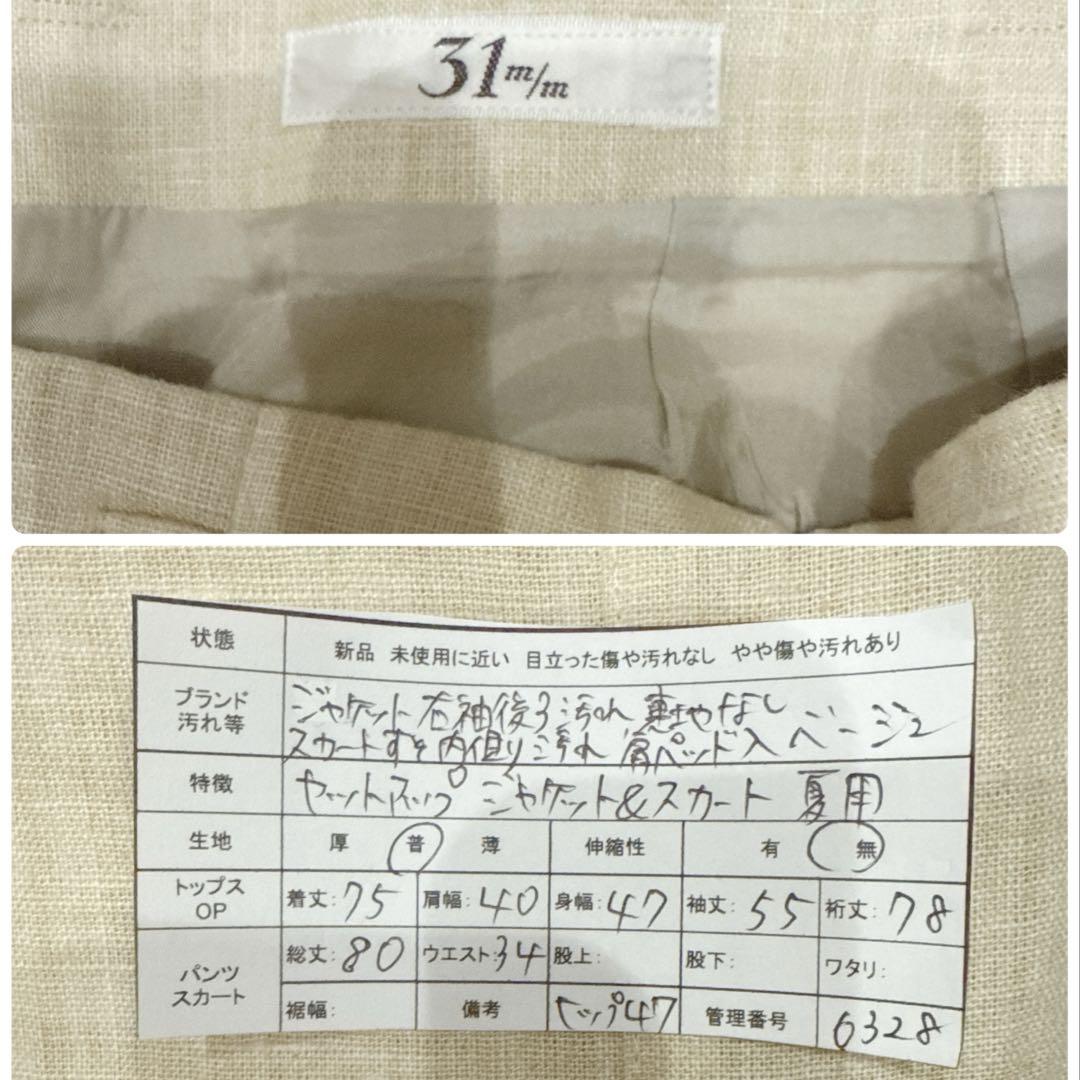 31 m/m
状態 新品 未使用に近い 目立った傷や汚れなし やや傷や汚れあり
ブランド 汚れ等 ジャケット右袖後ろ汚れ、裏地なし
スカートすそ内側汚れ 肩パッド入 ベージュ
特徴 セットアップ ジャケット&スカート 夏用
生地 厚 普 薄 伸縮性 有 無
トップス OP 着丈:75 肩幅:40 身幅:47 袖丈:55 裄丈:78
パンツ スカート 総丈:80 ウエスト:34 股上: 股下: ワタリ:
裾幅: 備考 ヒップ47 管理番号 6328